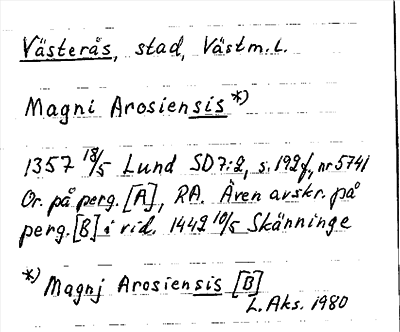 Västerås, stad, Västm.L.
Magni Arosiensis *)
1357 18/5 Lund SD 7:2, s. 192 f, nr 5741
Or. på perg. [A], RA. Även avskr. på
perg. [B] i vid. 1442 10/5 Skänninge
*) Magnj Arosiensis [B]
L. Aks. 1980